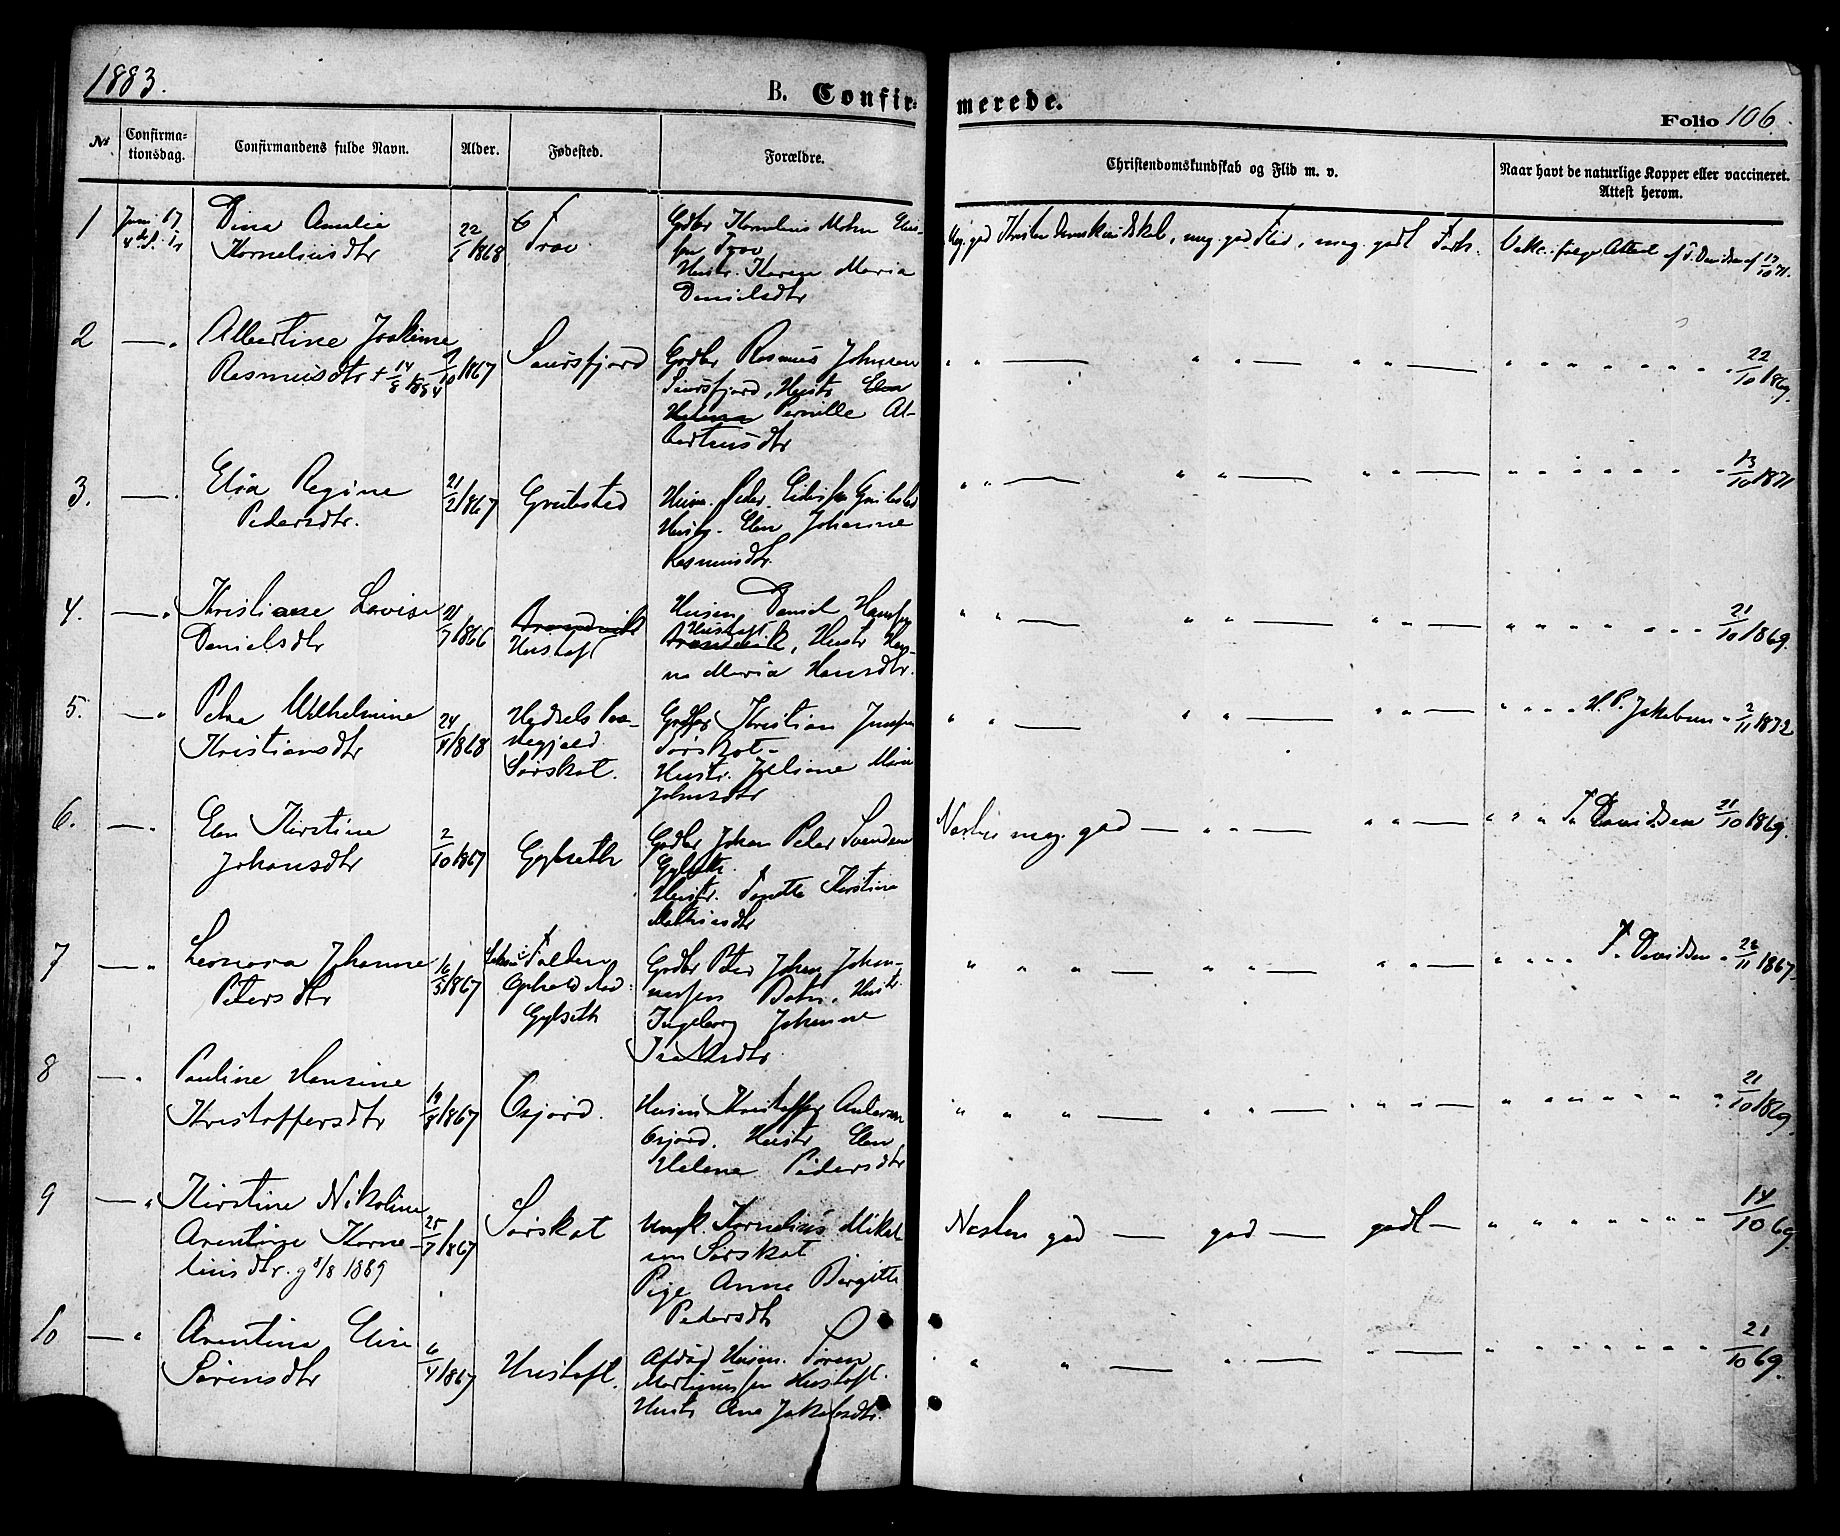 1883.
B. Confirmerede.
Folio 106.
No. Confirmationsdag. Confirmandens fulde Navn. Alder. Fødested. Forældre. Christendomskundskab og Flid m. v. Naar havt de naturlige Kopper eller vaccineret. Attest herom.
1 Juni 17
Dina Amalia
Korneliusdtr
22/1 1868
Gdbr Kornelius
Hustr. Karen Maria
Danielsdtr
Meg. god Kristendomskundskab, meg. god Flid, meg. godt Forh.
Vakc. følge Attest af T. Davidsen af 17/10 71.
2 — "
Albertine Joakime
Rasmusdtr + 14/8 1884
1/10 1867
Saursfjord
Gdbr Rasmus Johnsen
Saursfjord, Hustr Elen
Helena Pernille Al-
bertusdtr
" " — " " — " " — " " " " " " " 22/10 1869.
3. — "
Elsa Regine
Pedersdtr.
21/2 1867
Grubsted
Husm. Peder
Hustr. Elen Johanne
Rasmusdtr.
" " — " " — " " — " " " " " " 13/10 1871
4. — "
Kristiane Lovise
Danielsdtr
21/7 1866
Brandvik
Hustoft
Husm. Daniel Hansen
Hustoft
Brandvik, Hustr Han-
na Maria Hansdtr.
" " — " " — " " — " " " " " " " 21/10 1869.
5. — "
Petra Wilhelmine
Kristiansdtr
24/4 1868
Hadsels Præ-
stegjæld
Sørskot.
Gdbr Kristian Jensen
Sørskot
Hustr. Juliane Maria
Johnsdtr
" " — " " — " " — " " " " H. P. Jakobsen " 2/11 1872
6. — "
Elen Kirstine
Johansdtr
2/10 1867
Gylseth
Gdbr Johan Peter Svendsen
Gylseth.
Hustr. Kirstine
Mathiasdtr
Næsten meg. god — " " — " " — " " " T. Davidsen 21/10 1869.
7 — "
Leonora Johanne
Petersdtr
16/3 1867
Folden
Opholdsted
Gylseth
Gdbr Peter Johan Johan-
nessen Botn, Hustr
Ingeborg Johanne
Isaksdtr
" " " — " " — " " — " " " " T. Davidsen " 26/11 1867.
8 — "
Pauline Hansine
Kristoffersdtr
19/8 1867
Osjord.
Husm Kristoffer Andersen
Osjord. Hustr Elen
Helene Pedersdtr
" " " — " " — " " " — " " " " " " " 21/10 1869.
9 — "
Kirstine Nikoline
Arentine Korne-
liusdtr. g 8/8 1889
25/7 1867
Sørskot
Ungk. Kornelius Mikal-
sen Sørskot
Pige Anne Birgitte
Pedersdtr
Næsten god — god — godt — " " " " " " " 14/10 69.
10 — "
Arentine Elise
Sørensdtr
6/4 1867
Hustoft.
Afdød Husm. Søren
Martinussen Hustoft.
Hustr Ane Jakobsdtr.
" " — " — " — " " " " " " " 21/10 69.